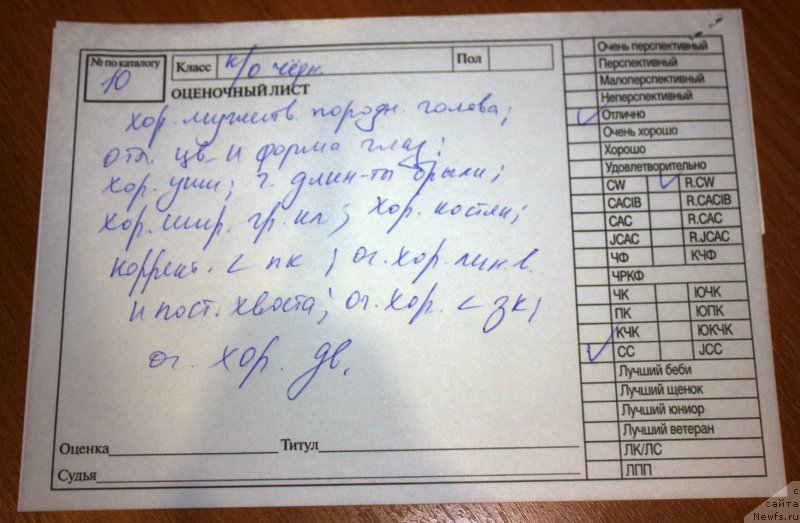 № по каталогу
10
Класс к/о чёрн.
Пол
ОЦЕНОЧНЫЙ ЛИСТ
хор. мужеств. породн. голова;
отл. цв. и форма глаз;
хор. уши; г. длин-ты брыли;
хор. шир. гр. кл; хор. кости;
коррект. < пк; оч. хор. лин. в.
и пост. хвоста; оч. хор. < зк;
оч. хор. дв.
Оценка Титул
Судья
Очень перспективный
Перспективный
Малоперспективный
Неперспективный
Отлично
Очень хорошо
Хорошо
Удовлетворительно
CW R.CW
CACIB R.CACIB
CAC R.CAC
JCAC R.JCAC
ЧФ КЧФ
ЧРКФ
ЧК ЮЧК
ПК ЮПК
КЧК ЮКЧК
СС JCC
Лучший беби
Лучший щенок
Лучший юниор
Лучший ветеран
ЛК/ЛС
ЛПП
с
сайта
Newfs.ru